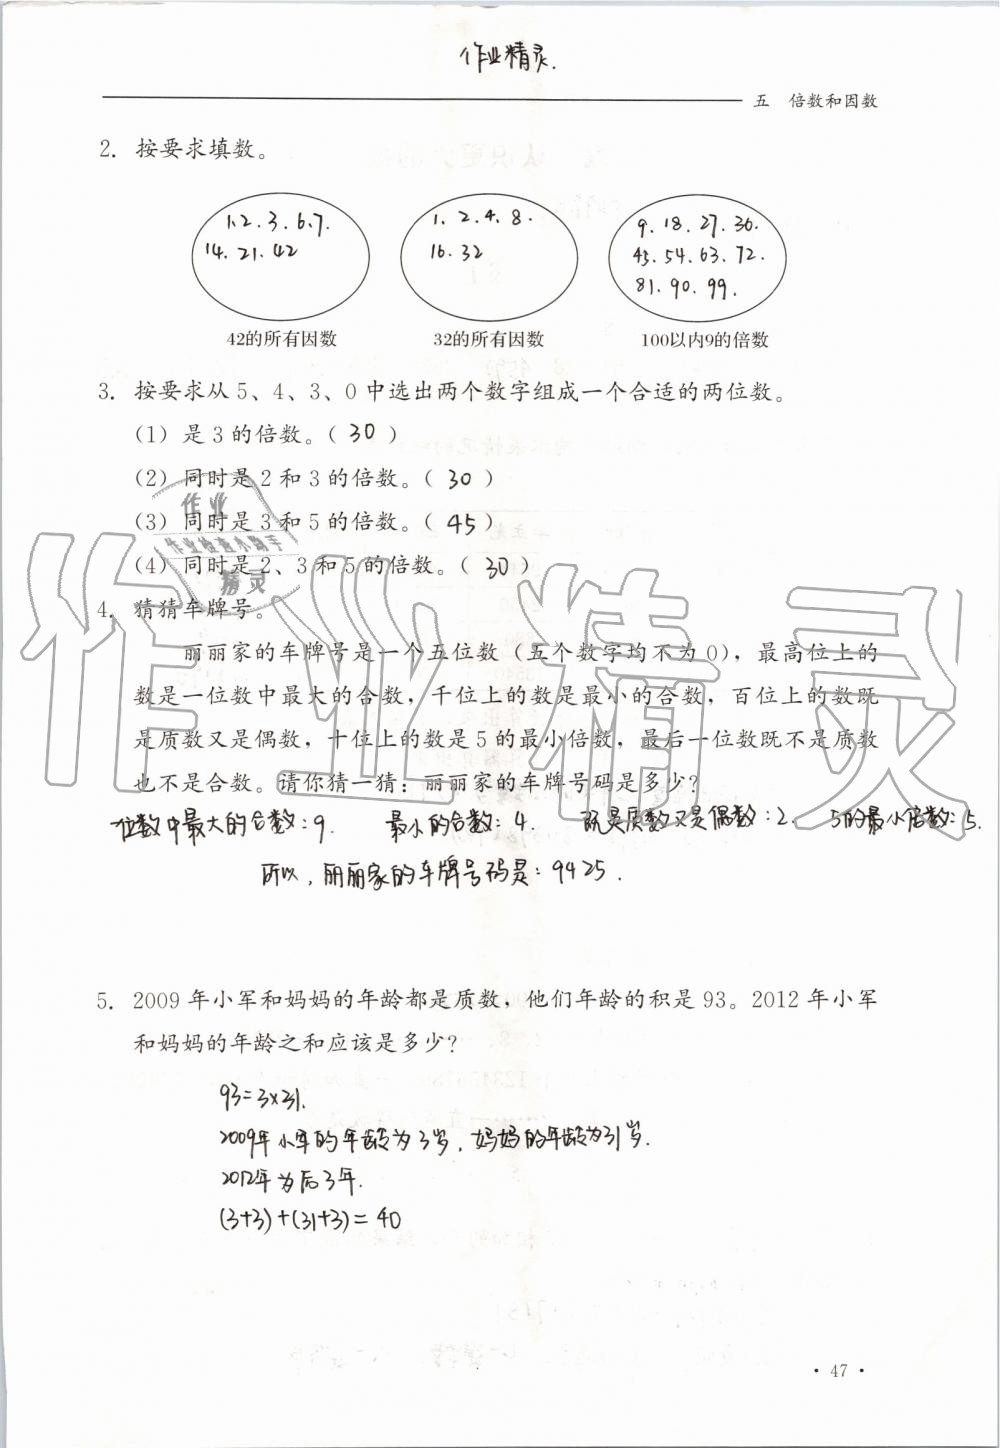 作业精灵.
五 倍数和因数
2. 按要求填数。
1.2.3.6.7.
14.21.42
1.2.4.8.
16.32
9.18.27.36.
45.54.63.72.
81.90.99.
42的所有因数
32的所有因数
100以内9的倍数
3. 按要求从5、4、3、0中选出两个数字组成一个合适的两位数。
(1) 是3的倍数。( 30 )
(2) 同时是2和3的倍数。( 30 )
(3) 同时是3和5的倍数。( 45 )
(4) 同时是2、3和5的倍数。( 30 )
作业
作业检查小助手
精灵
作业精灵
4. 猜猜车牌号。
丽丽家的车牌号是一个五位数（五个数字均不为0），最高位上的
数是一位数中最大的合数，千位上的数是最小的合数，百位上的数既
是质数又是偶数，十位上的数是5的最小倍数，最后一位数既不是质数
也不是合数。请你猜一猜：丽丽家的车牌号码是多少？
一位数中最大的合数:9. 最小的合数:4. 既是质数又是偶数:2. 5的最小倍数:5.
所以,丽丽家的车牌号码是:9425.
5. 2009年小军和妈妈的年龄都是质数，他们年龄的积是93。2012年小军
和妈妈的年龄之和应该是多少？
93=3×31.
2009年小军的年龄为3岁,妈妈的年龄为31岁.
2012年为后3年.
(3+3)+(31+3)=40
· 47 ·